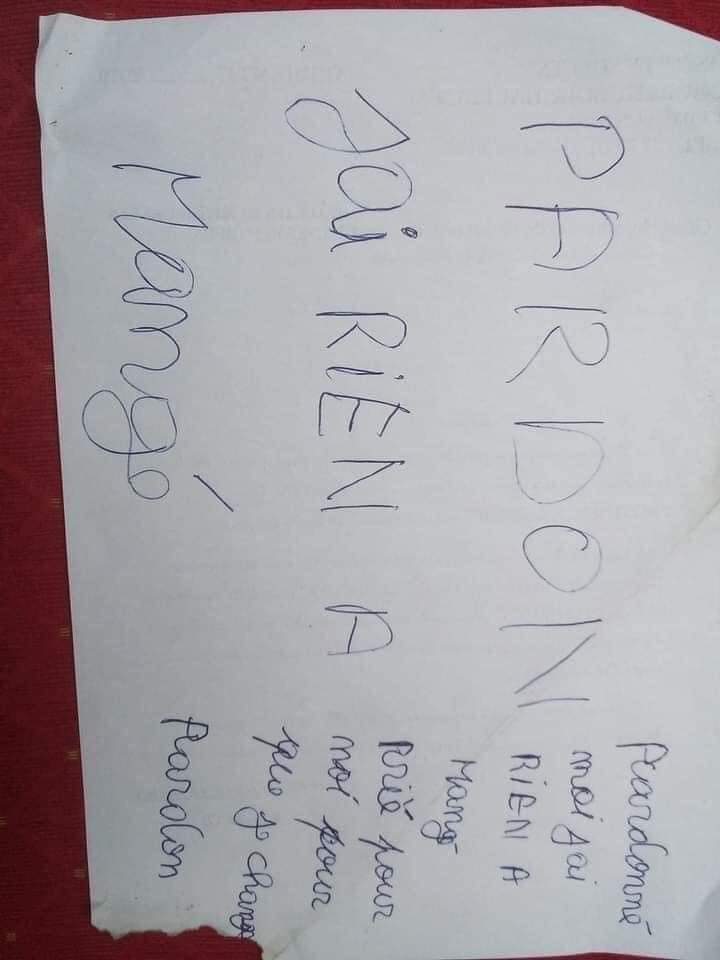 PARDON
Jai RiEN A
Mangé
Pardonné
moi jai
RiEN A
Mang
Prié pour
moi pour
que je change
Pardon